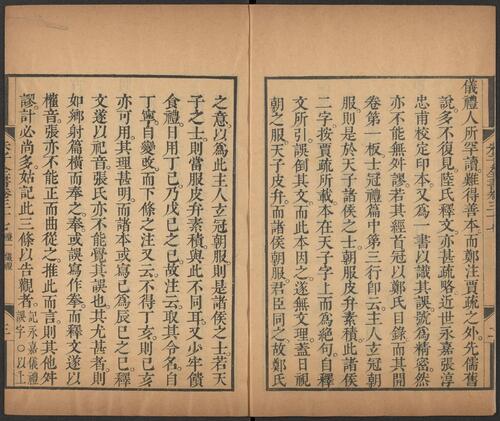 儀禮人所罕讀難得善本而鄭注賈疏之外先儒舊
說多不復見陸氏釋文亦甚疏略近世永嘉張淳
忠甫校定印本又為一書以識其誤號為精密然
亦不能無舛謬若其經首冠以鄭氏目錄而其開
卷第一板士冠禮篇中第三行卽云主人玄冠朝
服則是於天子諸侯之士朝服皮弁素積此諸侯
二字按賈疏所載本在天子字上而為絕句自釋
文所引誤倒其文而此本因之遂無文理蓋日視
朝之服天子皮弁而諸侯朝服君臣同之故鄭氏
之意以為此主人玄冠朝服則是諸侯之士若天
子之士則當服皮弁素積與此不同耳又少牢饋
食禮日用丁巳乃戊己之己故注云取其令名自
丁寧自變改而下條之注又云不得丁亥則己亥
亦可用其理甚明而諸本或寫己為辰巳之巳釋
文遂以祀音張氏亦不能覺其誤也其尤甚者則
如鄉射篇橫而奉之奉或誤寫作拳而釋文遂以
權音張亦不能正而曲從之推此而言則其他舛
謬計必尚多姑記此三條以告觀者
記永嘉儀禮
誤字〇以上